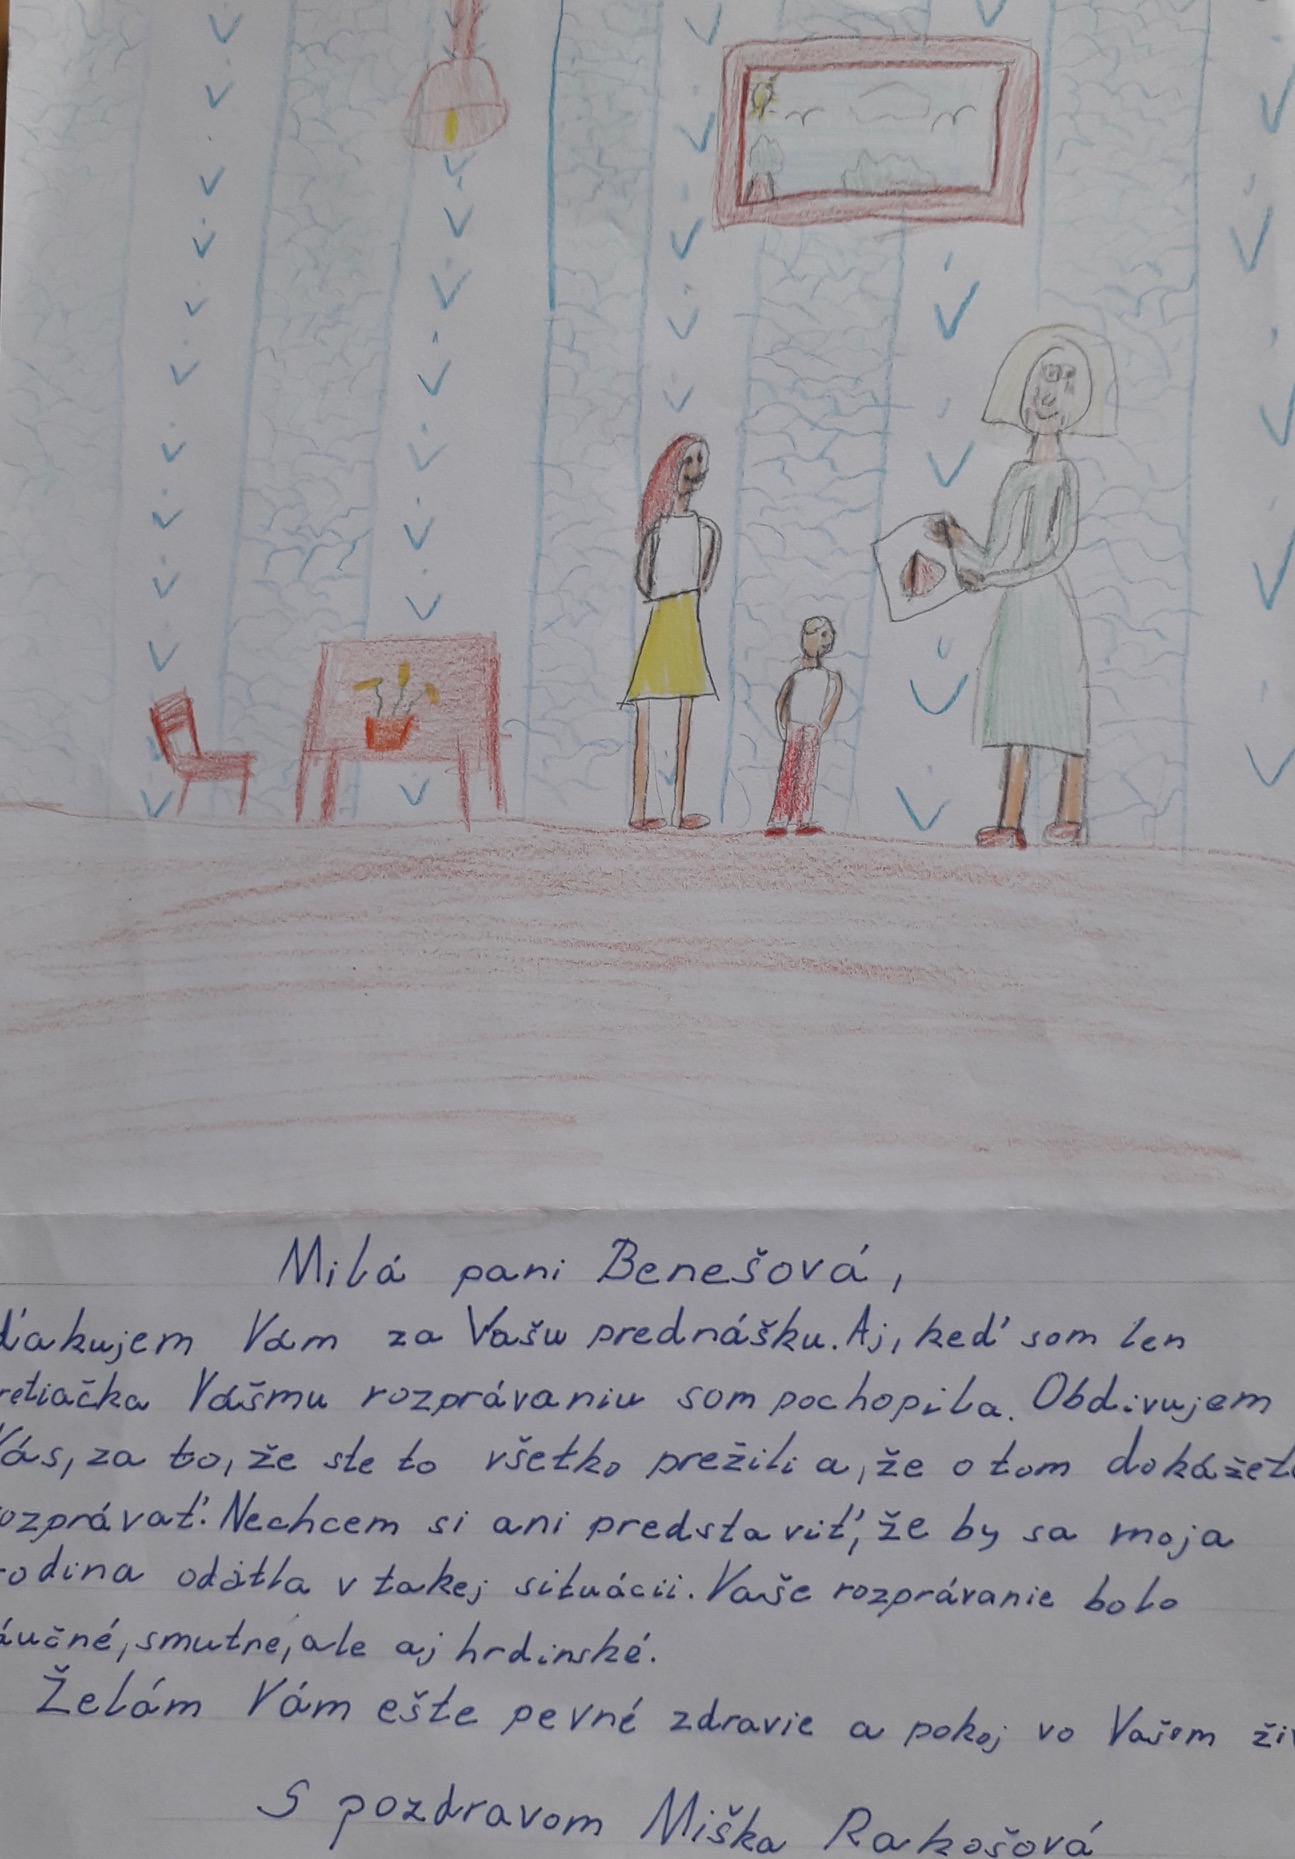 Milá pani Benešová,
ďakujem Vám za Vašu prednášku. Aj, keď som len
retiačka Vášmu rozprávaniu som pochopila. Obdivujem
Vás, za to, že ste to všetko prežili a, že o tom dokážete
ozprávať. Nechcem si ani predstaviť, že by sa moja
odina odátla v takej situácii. Vaše rozprávanie bolo
áučné, smutné, ale aj hrdinské.
Želám Vám ešte pevné zdravie a pokoj vo Vašom živ
S pozdravom Miška Rakošová